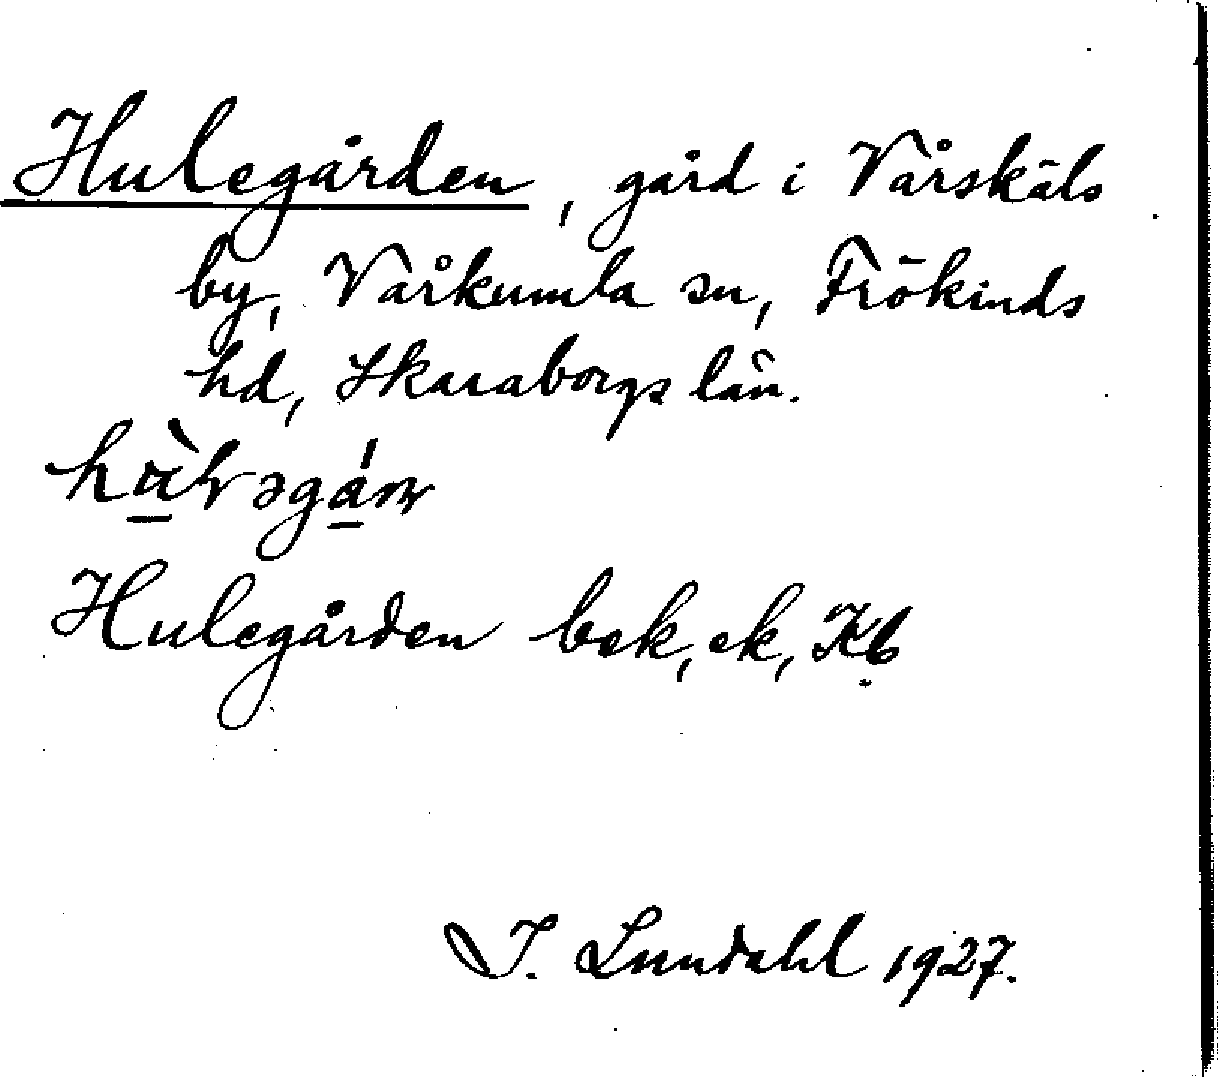 Hulegården, gård i Vårskäls
by, Vårkumla sn, Frökinds
hd, Skaraborgs län.
Hulegården bek, ek, Kb
I. Lundahl 1927.